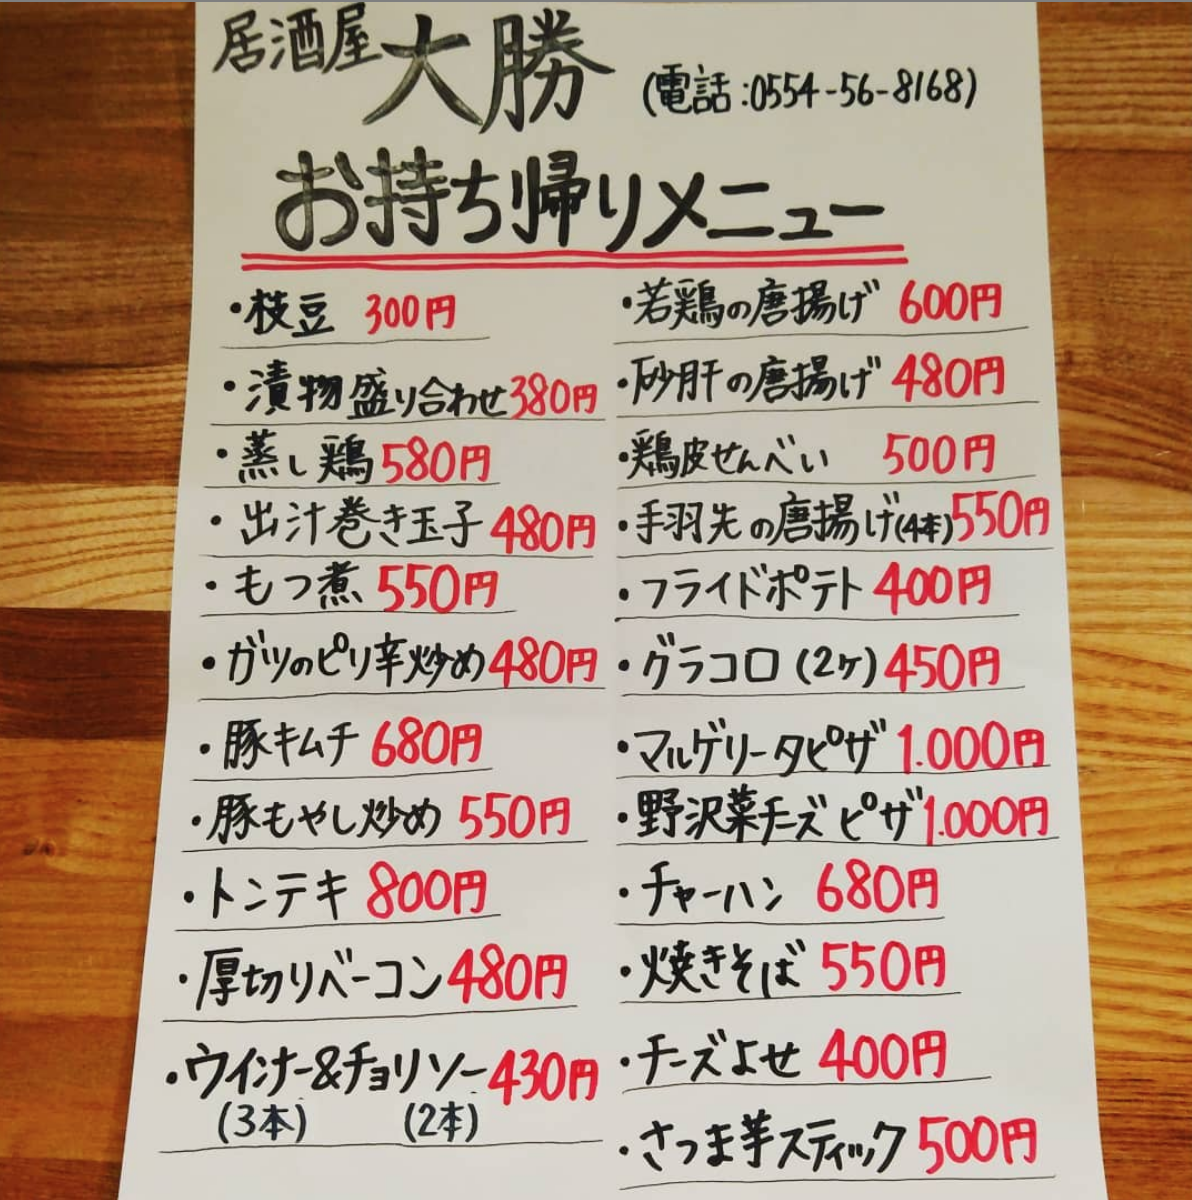 居酒屋 大勝 (電話:0554-56-8168)
お持ち帰りメニュー
・枝豆 300円
・漬物盛り合わせ 380円
・蒸し鶏 580円
・出汁巻き玉子 480円
・もつ煮 550円
・ガツのピリ辛炒め 480円
・豚キムチ 680円
・豚もやし炒め 550円
・トンテキ 800円
・厚切りベーコン 480円
・ウインナー&チョリソー 430円
(3本) (2本)
・若鶏の唐揚げ 600円
・砂肝の唐揚げ 480円
・鶏皮せんべい 500円
・手羽先の唐揚げ(4本) 550円
・フライドポテト 400円
・グラコロ(2ケ) 450円
・マルゲリータピザ 1.000円
・野沢菜チーズピザ 1.000円
・チャーハン 680円
・焼きそば 550円
・チーズよせ 400円
・さつま芋スティック 500円